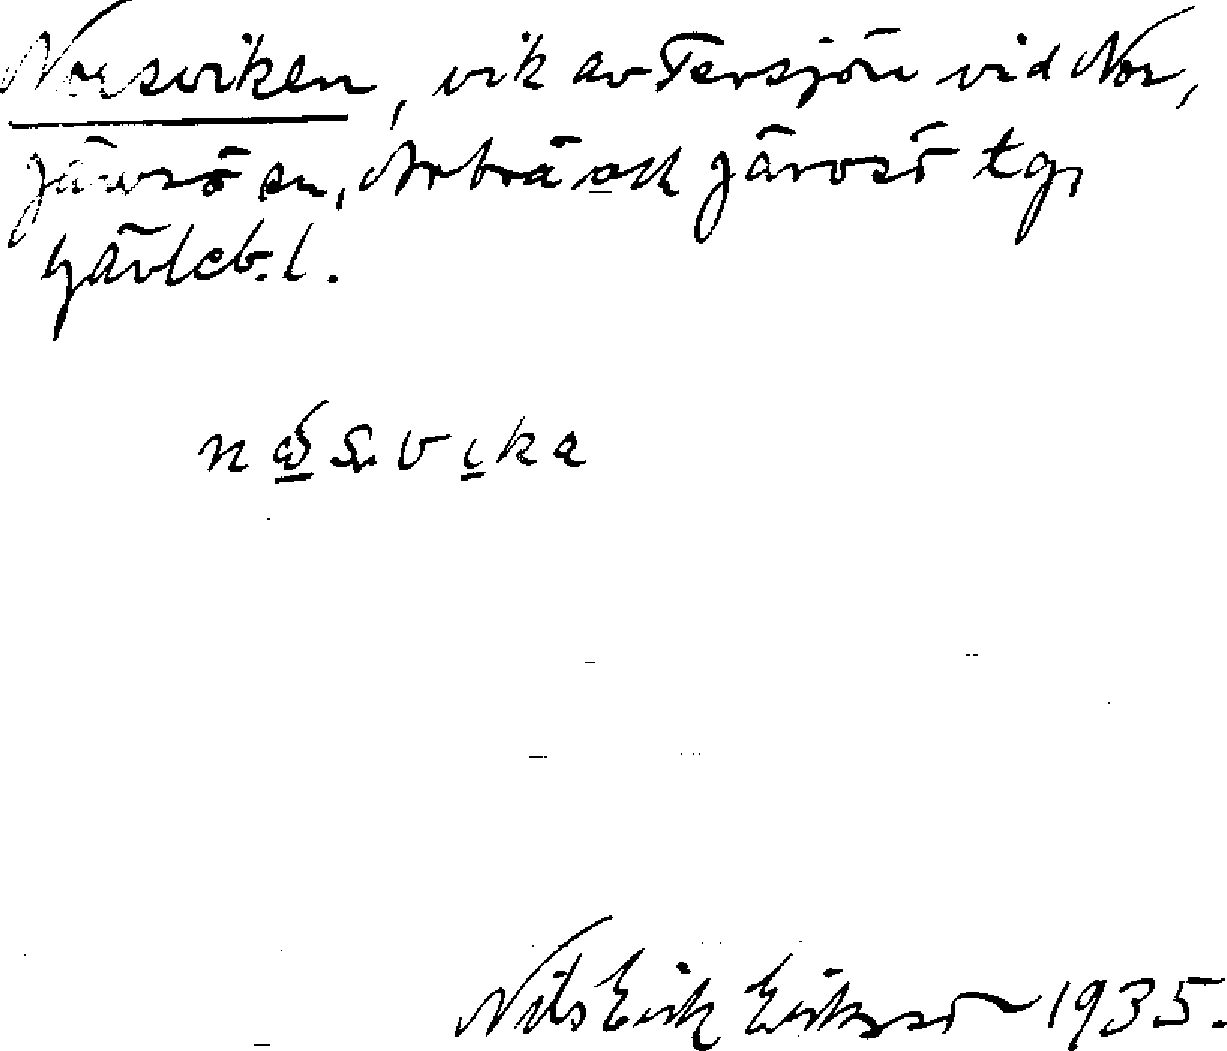 Norsviken, vik av Tersjön vid Nor,
Järvsö sn, Arbrå och Järvsö tg,
Gävleb. l.
Nils Erik Eriksson 1935.